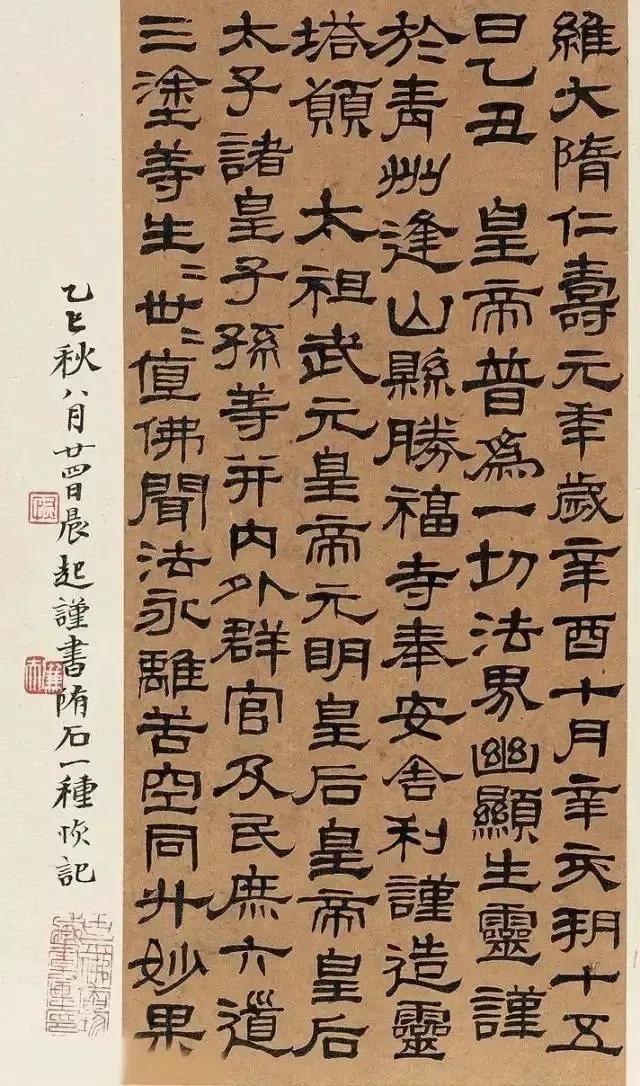 維大隋仁壽元年歲辛酉十月辛亥朔十五
日乙丑 皇帝普為一切法界幽顯生靈謹
於青州逢山縣勝福寺奉安舍利謹造靈
塔願 太祖武元皇帝元明皇后皇帝皇后
太子諸皇子孫等并內外群官及民庶六道
三塗等生〻世〻值佛聞法永離苦空同升妙果
乙巳秋八月廿四日晨起謹書隋石一種記